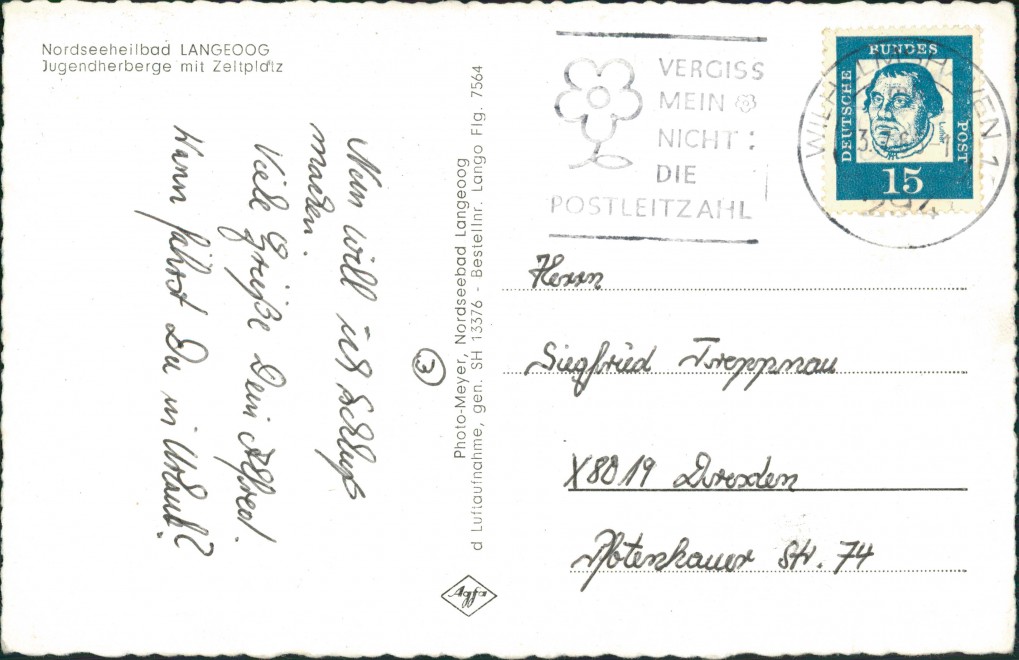 Nordseeheilbad LANGEOOG
Jugendherberge mit Zeltplatz
Nun will ich Schluß
machen.
Viele Grüße Dein Alfred.
Wann fährst Du in Urlaub?
3
Photo-Meyer, Nordseebad Langeoog
d Luftaufnahme, gen. SH 13376 - Bestellnr. Lango Flg. 7564
Agfa
VERGISS
MEIN
NICHT:
DIE
POSTLEITZAHL
WILHELMSHAVEN 1
294
DEUTSCHE
BUNDES
POST
15
Herrn
Siegfried Treppnau
X8019 Dresden
Pfotenhauer Str. 74